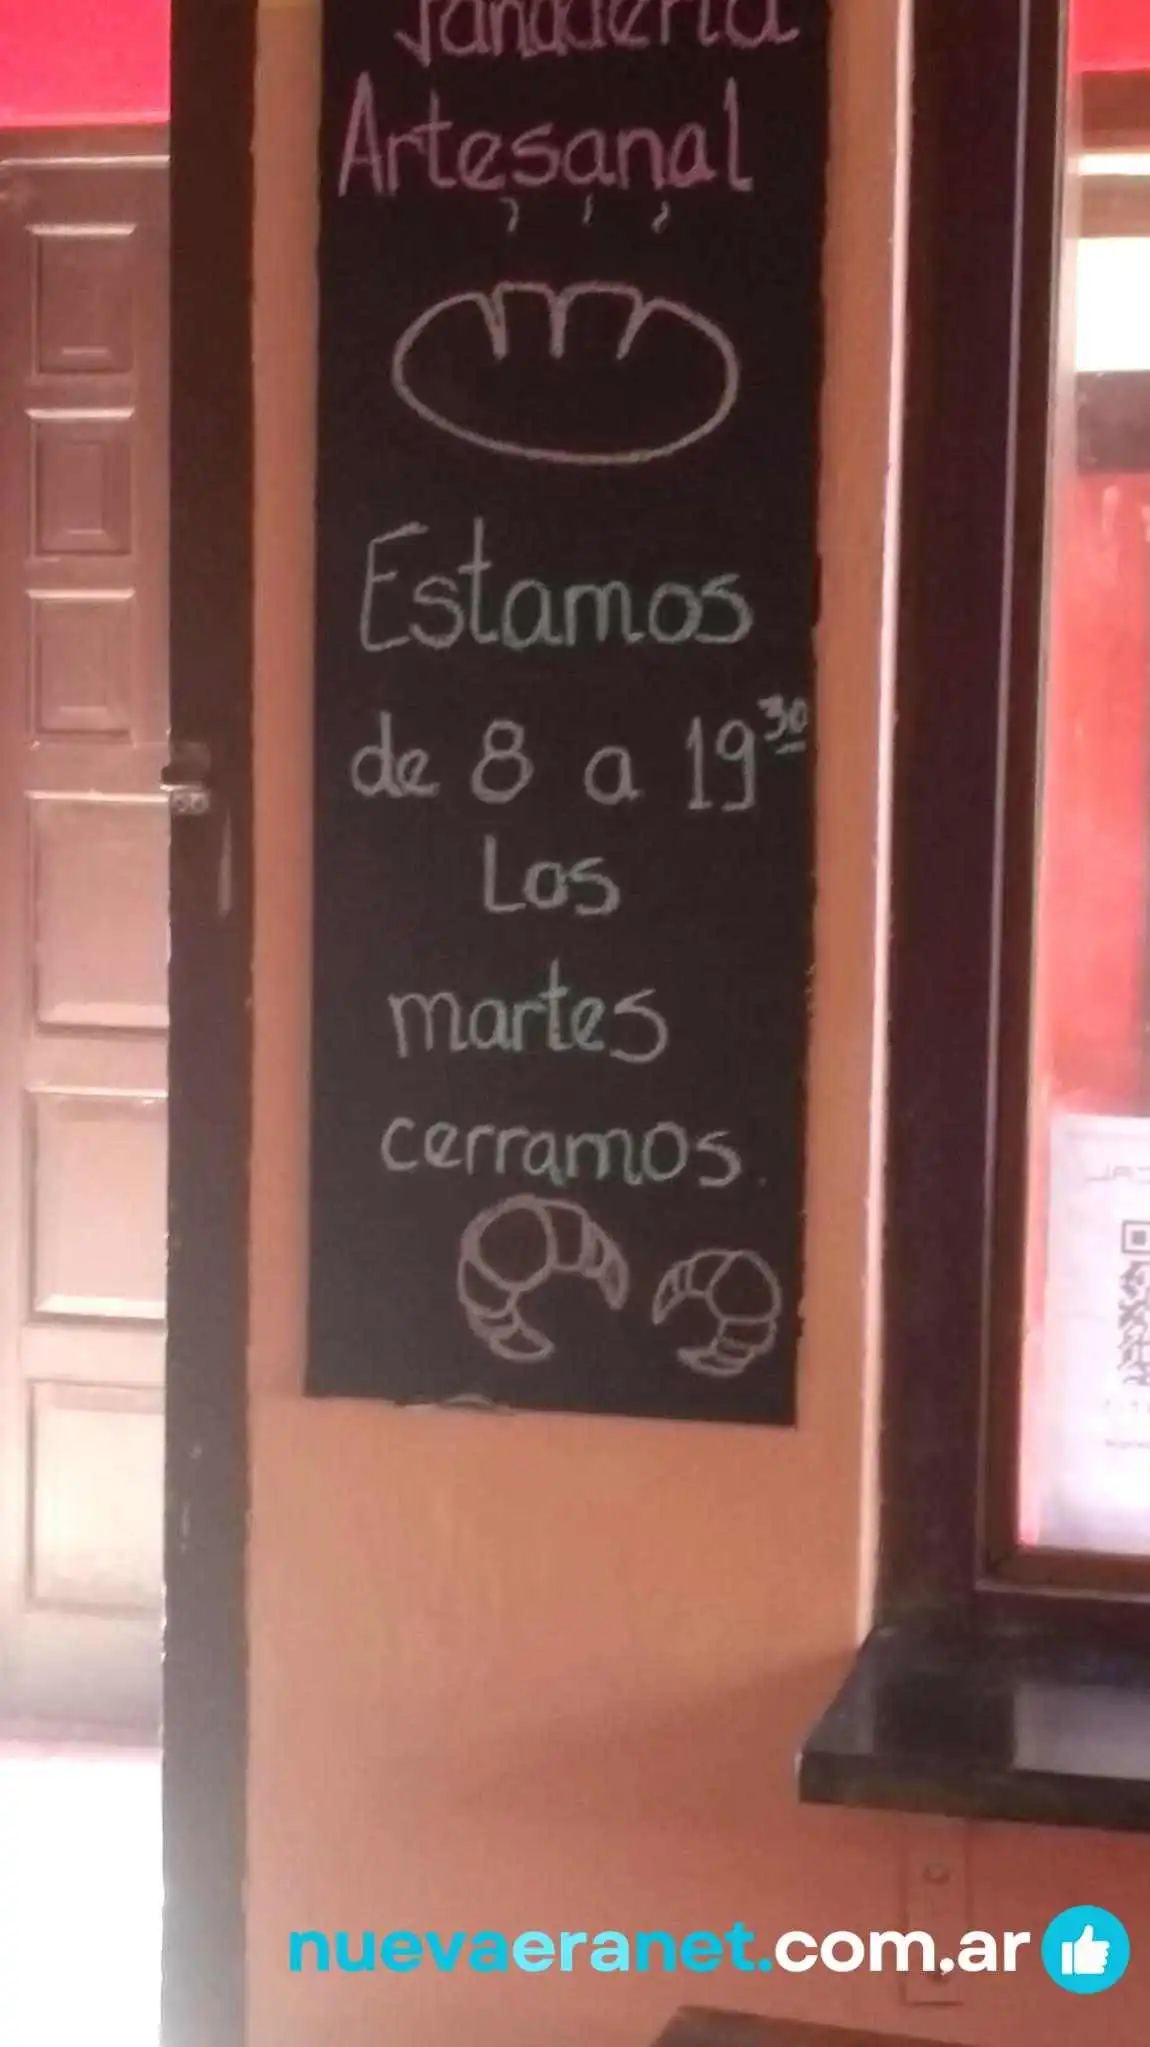 Panadería
Artesanal
Estamos
de 8 a 19 30
Los
martes
cerramos.
nuevaeranet.com.ar